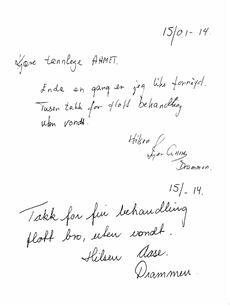 15/01-14.
Kjære tannlege AHMET.
Enda en gang er jeg like fornøyd.
Tusen takk for flott behandling
uten vondt.
Hilsen
Drammen.
15/-14.
Takk for fin behandling
flott bro, uten vondt.
Hilsen Aase.
Drammen.